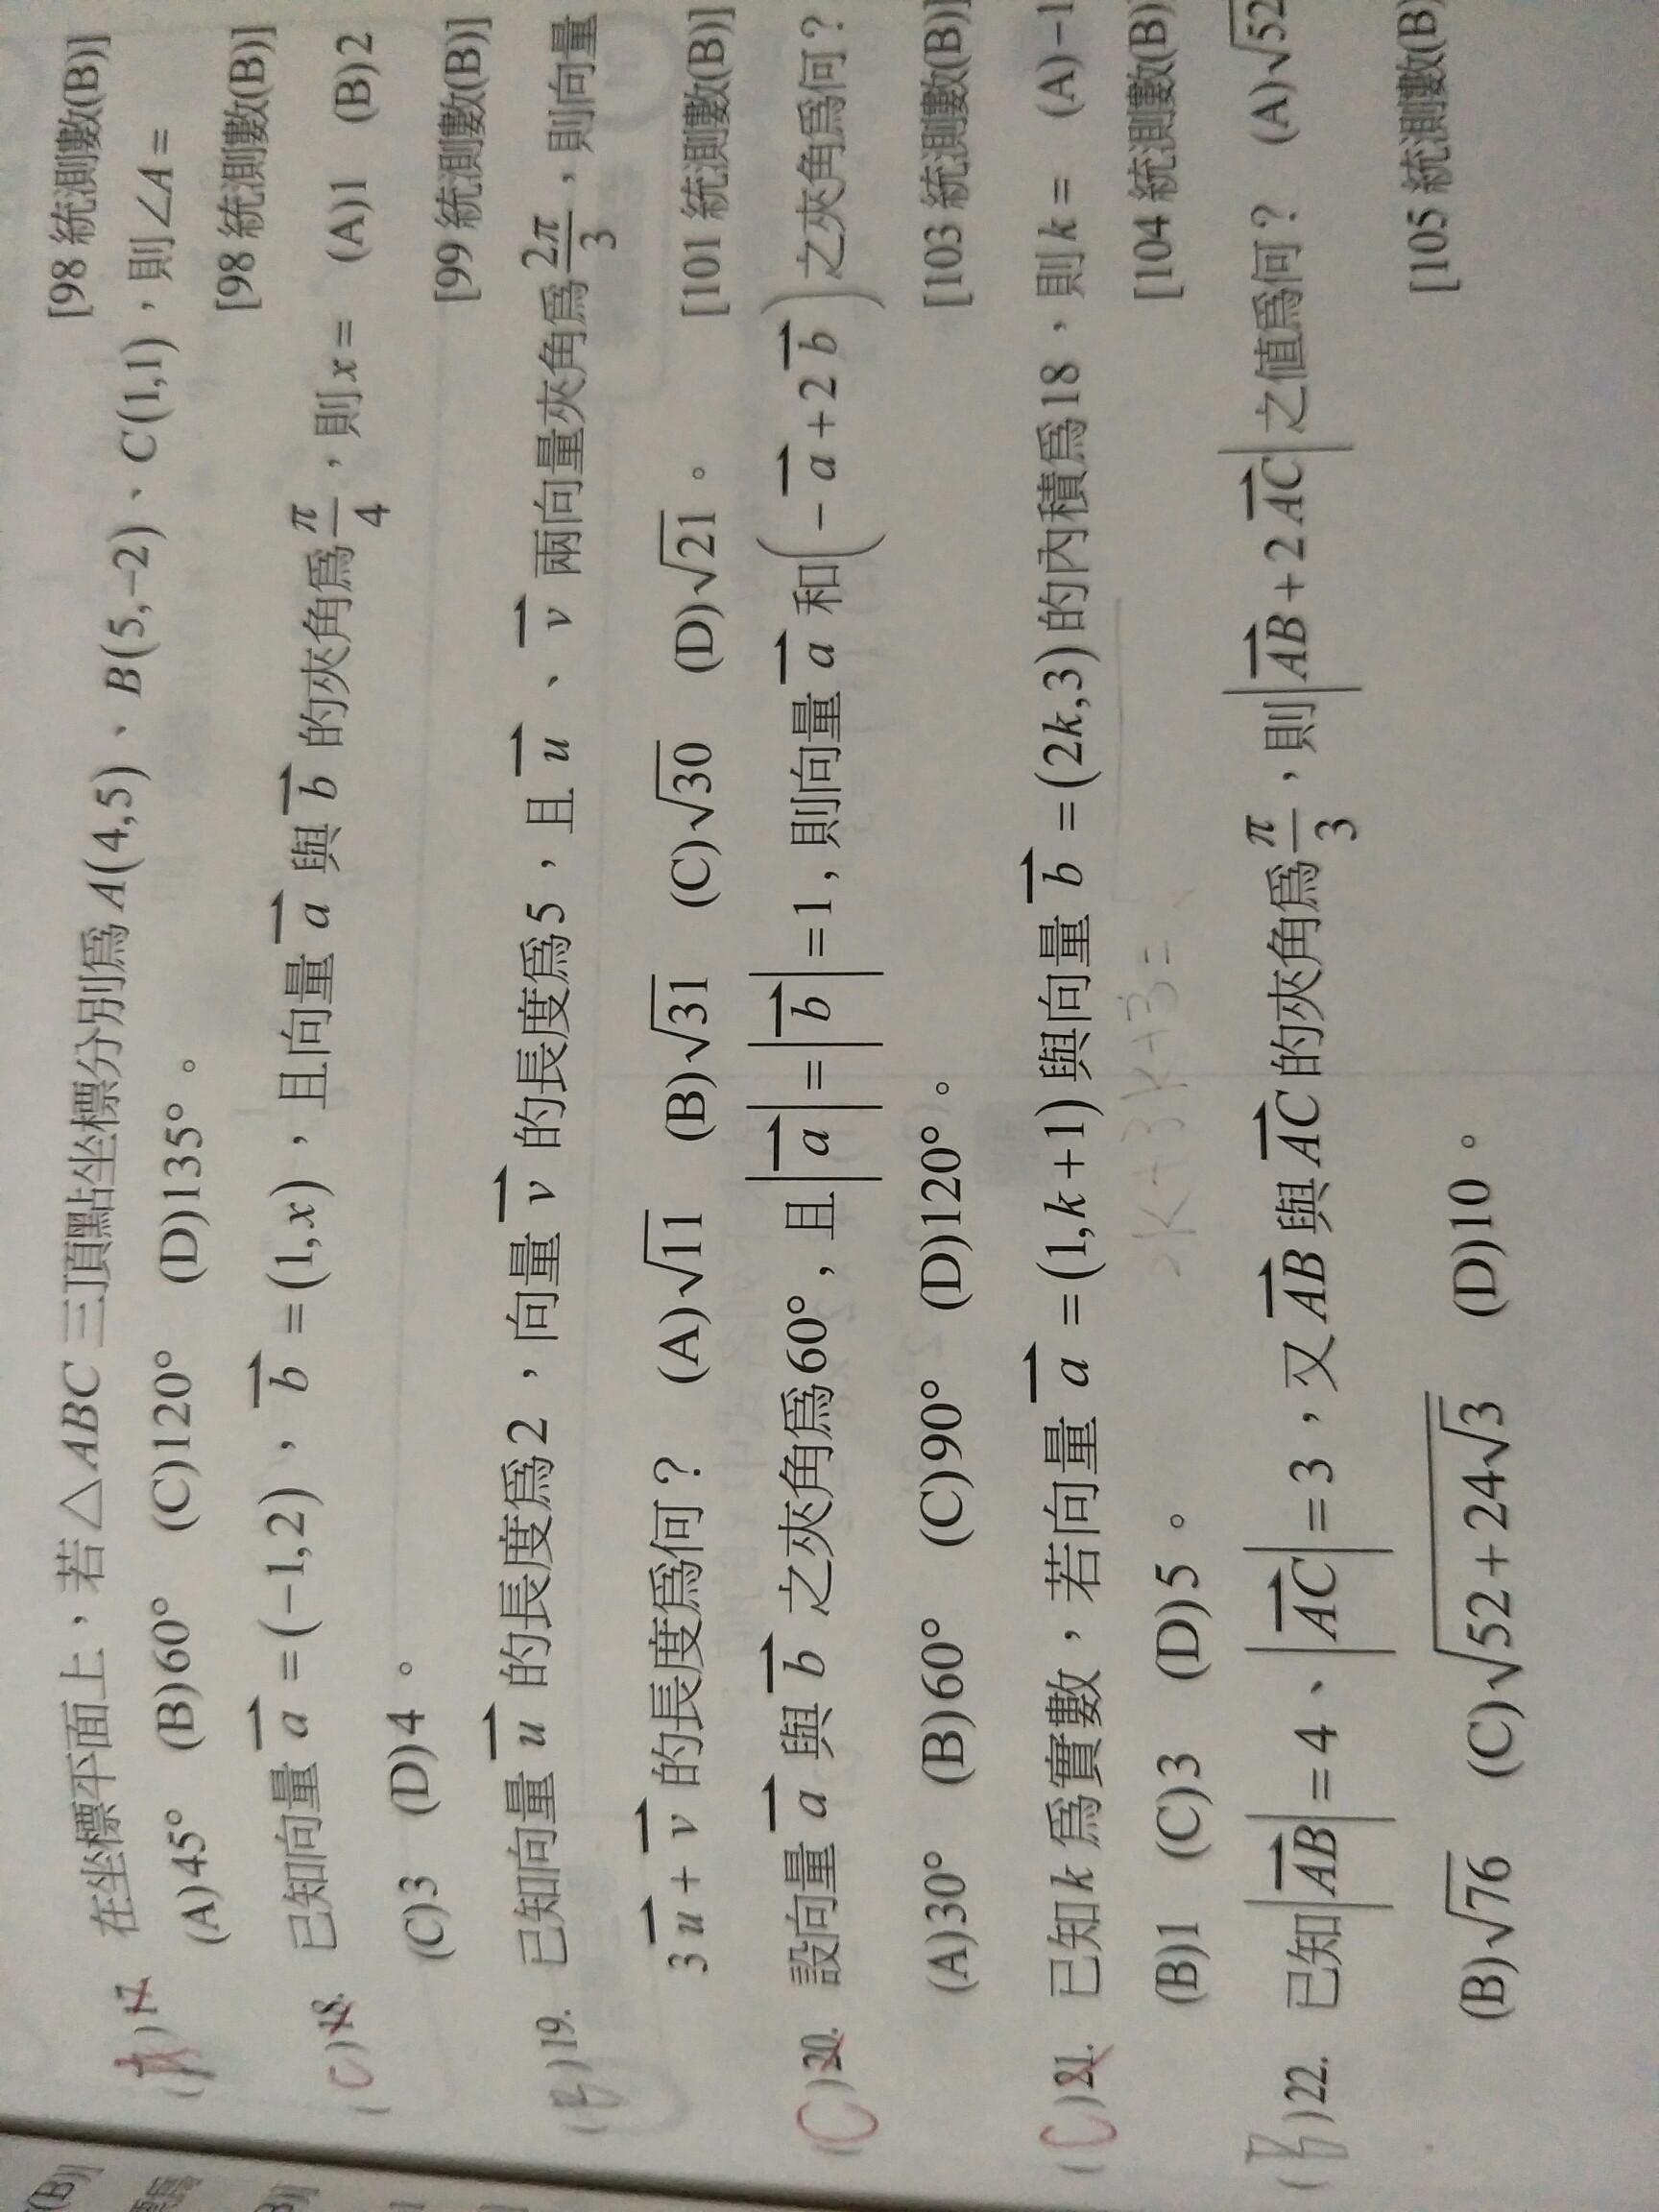 [98 統測數(B)]
(A)17. 在坐標平面上，若△ABC 三頂點坐標分別爲 A(4,5)、B(5,−2)、C(1,1)，則∠A =
(A)45° (B)60° (C)120° (D)135°。
[98 統測數(B)]
(C)18. 已知向量 a⃗ = (−1,2)，b⃗ = (1,x)，且向量 a⃗ 與 b⃗ 的夾角爲 π/4，則 x = (A)1 (B)2
(C)3 (D)4。
[99 統測數(B)]
(B)19. 已知向量 u⃗ 的長度爲2，向量 v⃗ 的長度爲5，且 u⃗、v⃗ 兩向量夾角爲 2π/3，則向量
3u⃗ + v⃗ 的長度爲何？ (A)√11 (B)√31 (C)√30 (D)√21。
[101 統測數(B)]
(C)20. 設向量 a⃗ 與 b⃗ 之夾角爲60°，且|a⃗| = |b⃗| = 1，則向量 a⃗ 和(−a⃗ + 2b⃗)之夾角爲何？
(A)30° (B)60° (C)90° (D)120°。
[103 統測數(B)]
(C)21. 已知 k 爲實數，若向量 a⃗ = (1,k+1) 與向量 b⃗ = (2k,3) 的內積爲18，則 k = (A)−1
2k+3k+3=
(B)1 (C)3 (D)5。
[104 統測數(B)
(B)22. 已知|AB⃗| = 4、|AC⃗| = 3，又 AB⃗ 與 AC⃗ 的夾角爲 π/3，則|AB⃗ + 2AC⃗|之值爲何？ (A)√52
(B)√76 (C)√(52+24√3) (D)10。
[105 統測數(B)